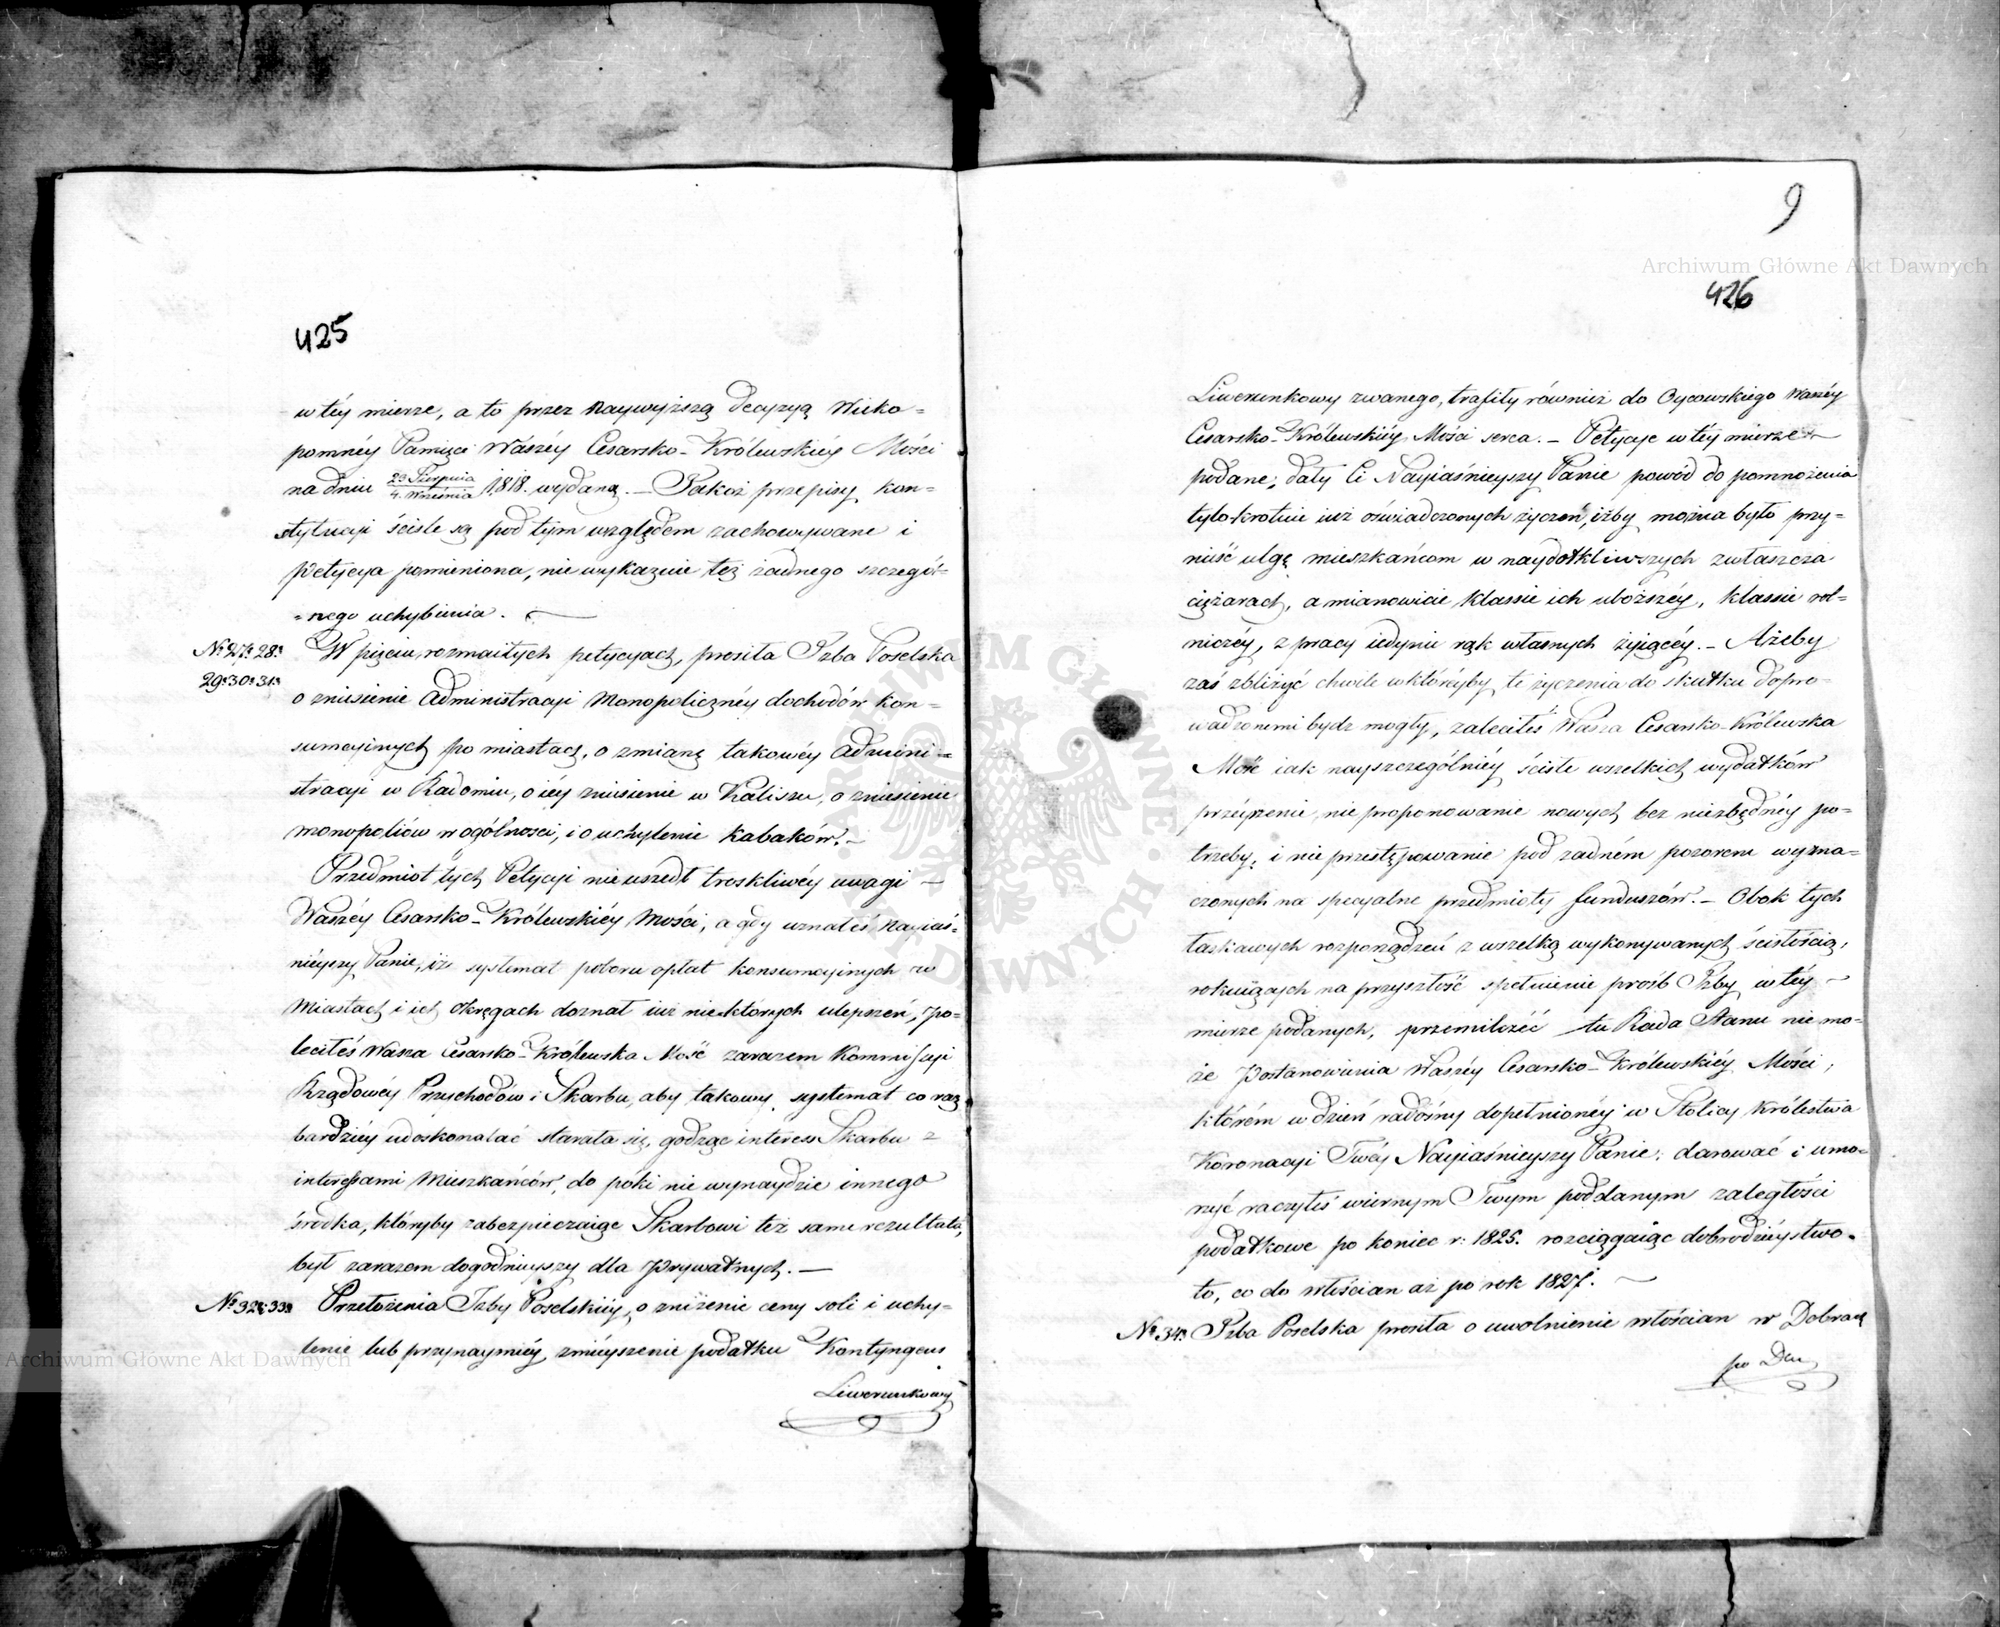 425
w téy mierze, a to przez Naywyższą decyzyą Wieko=
pomnéy Pamięci Waszéy Cesarsko-Królewskiéy Mości
na dniu 23 Sierpnia / 4. Września 1818. wydaną. — Jakoż przepisy kon=
stytucyi ściśle są pod tym względem zachowywane i
Petycya pomieniona, nie wykazuie też żadnego szczegól=
=nego uchybienia.
No 27. 28.
29. 30. 31.
W pięciu rozmaitych petycyach, prosiła Izba Poselska
o zniesienie Administracyi Monopolicznéy dochodów kon=
sumcyinych po miastach, o zmianę takowéy Admini=
stracyi w Radomiu, o iéy zniesienie w Kaliszu, o zniesienie
monopoliów w ogólnosci, i o uchylenie Kabaków. —
Przedmiot tych Petycyi nie uszedł troskliwéy uwagi —
Waszéy Cesarsko-Królewskiéy Mości, a gdy uznałeś Nayiaś=
nieyszy Panie, iż systemat poboru opłat konsumcyinych w
Miastach i ich Okręgach doznał iuż niektórych ulepszeń, po=
leciłeś Wasza Cesarsko-Królewska Mość zarazem Kommissyi
Rządowéy Przychodów i Skarbu, aby takowy systemat co raz
bardziéy udoskonalać starała się, godząc interess Skarbu z
interessami Mieszkańców, do póki nie wynaydzie innego
środka, któryby zabezpieczaiąc Skarbowi też same rezultata,
był zarazem dogodnieyszy dla Prywatnych. —
No 32. 33.
Przełożenia Izby Poselskiéy, o zniżenie ceny soli i uchy=
lenie lub przynaymniéy zmnieyszenie podatku Kontyngens
Liwerunkowy
9
426
Liwerunkowy zwanego, trafiły również do Oycowskiego Waszéy
Cesarsko-Królewskiéy Mości serca. — Petycye w téy mierze
podane, dały Ci Nayiaśnieyszy Panie powód do pomnożenia
tylokrotnie iuż oświadczonych życzeń, iżby można było przy=
nieść ulgę mieszkańcom w naydotkliwszych zwłaszcza
ciężarach, a mianowicie klassie ich uboższéy, klassie rol=
niczéy, z pracy iedynie rąk własnych żyiącéy. — Ażeby
zaś zbliżyć chwile w któréyby te życzenia do skutku dopro=
wadzonemi bydz mogły, zaleciłeś Wasza Cesarsko-Królewska
Mość iak nayszczególniéy ściśle wszelkich wydatków
przeyrzenie, nie proponowanie nowych bez niezbędnéy po=
trzeby, i nie przestępowanie pod żadném pozorem wyzna=
czonych na specyalne przedmioty funduszów. — Obok tych
łaskawych rozporządzeń z wszelką wykonywanych ścisłością,
rokuiących na przyszłość spełnienie prośb Izby w téy —
mierze podanych, przemilczéć tu Rada Stanu nie mo=
że Postanowienia Waszéy Cesarsko-Królewskiéy Mości,
którém w dzień radośny dopełnionéy w Stolicy Królestwa
Koronacyi Twéy Nayiaśnieyszy Panie, darować i umo=
rzyć raczyłeś wiernym Twym poddanym zaległości
podatkowe po koniec r: 1825. rozciągaiąc dobrodzieystwo
to, co do włościan aż po rok 1827.
No 34.
Izba Poselska prosiła o uwolnienie włościan w Dobrach
po Du
Archiwum Główne Akt Dawnych
Archiwum Główne Akt Dawnych
ARCHIWUM GŁÓWNE AKT DAWNYCH